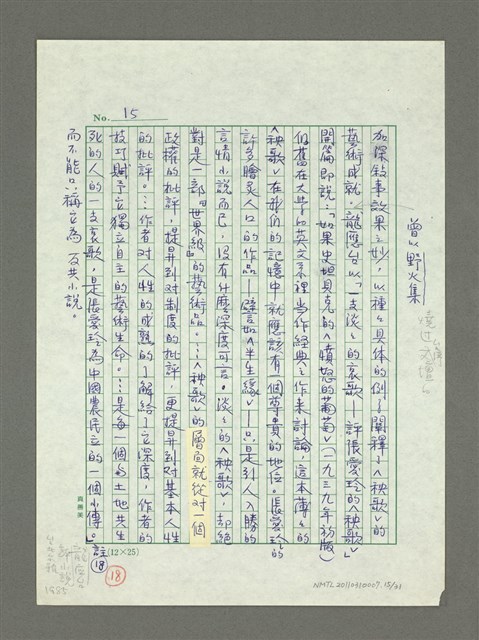 No. 15
加深敘事效果之妙，以種々具体的例子闡釋了〈秧歌〉的
藝術成就。龍應台以「一支淡々的哀歌—評張愛玲的〈秧歌〉」
開篇即說：「如果史坦貝克的〈憤怒的葡萄〉(一九三九年初版)
仍舊在大學的英文系裡当作經典之作來討論，這本薄々的
〈秧歌〉在我們的記憶中就應該有一個尊貴的地位。張愛玲的
許多膾炙人口的作品—譬如〈半生緣〉—只是引人入勝的
言情小說而已，沒有什麼深度可言。淡々的〈秧歌〉，却絕
對是一部『世界級』的藝術品。…〈秧歌〉的層面就從对一個
政權的批評，提昇到对制度的批評，更提昇到对基本人性
的批評。…作者对人性的成熟的了解給了它深度，作者的
技巧賦予它獨立自主的藝術生命。…是每一個与土地共生
死的人的一支哀歌，是張愛玲為中國農民立的一個小傳。」註⑱
而不能只稱它為反共小說。
曾以野火集
燒过文壇
(12×25)
⑱
龍应台
評小說
1985
NMTL20110310007 15/21